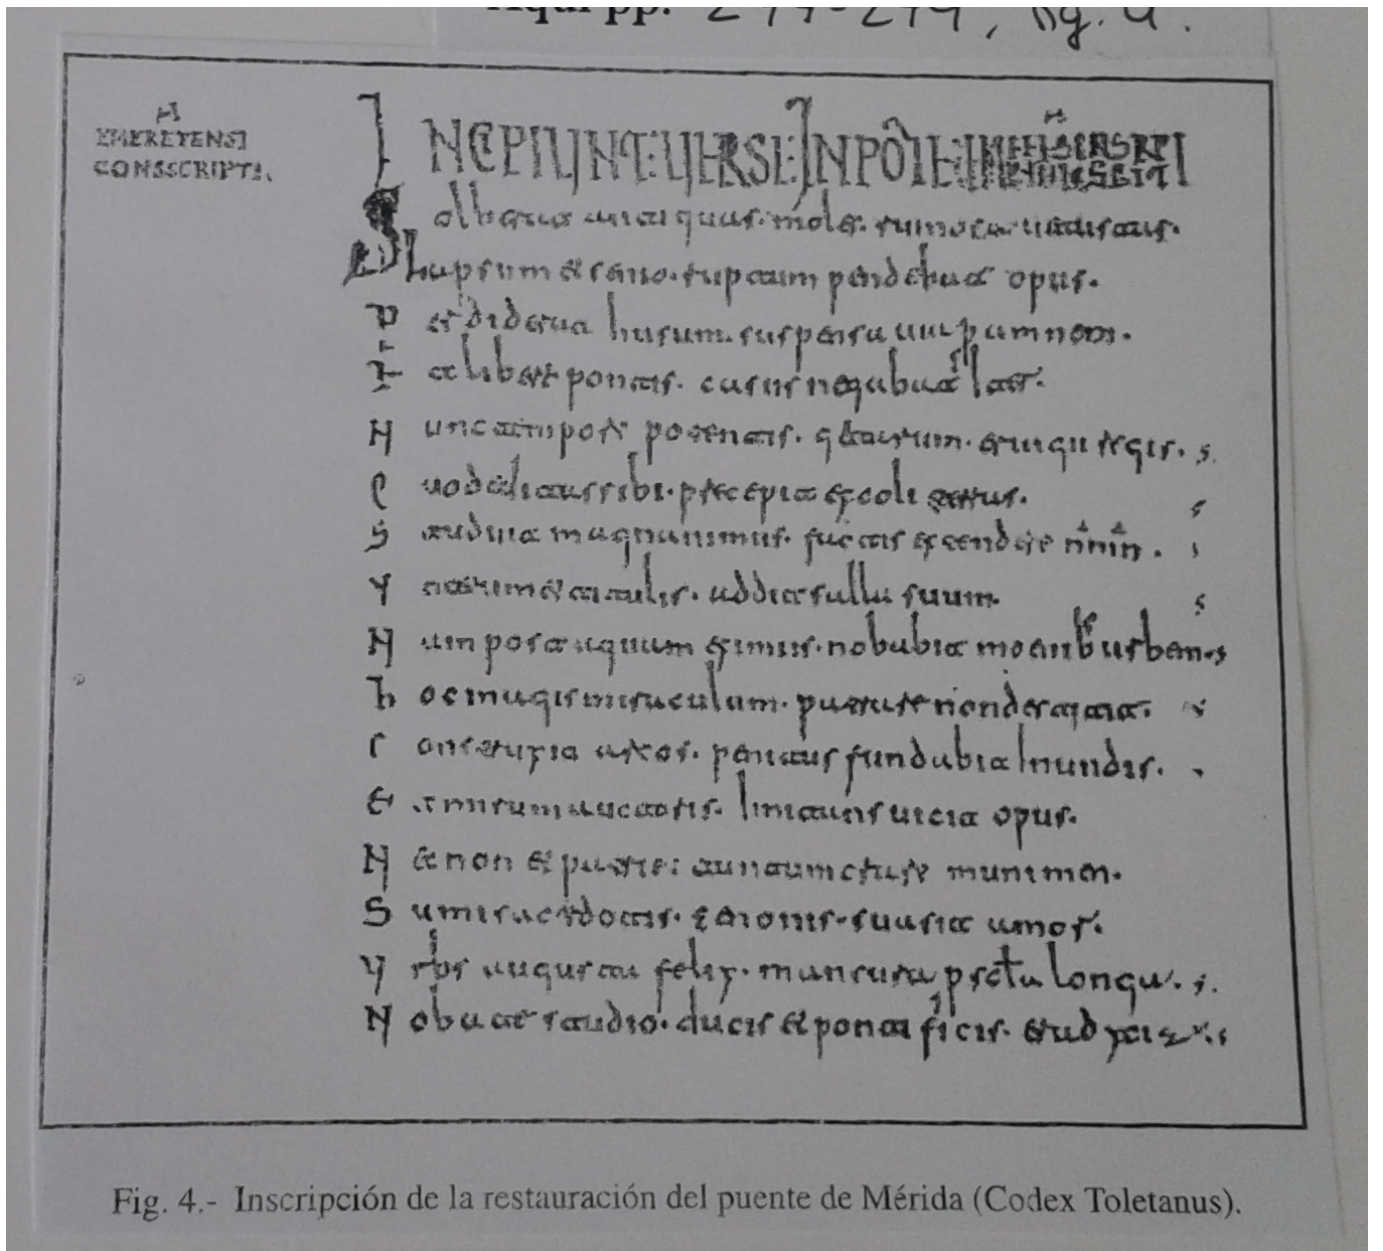 Aquí pp. 
fig. 4.
N
EMERETENSI
CONSSCRIPTI.
INCIPIUNT UERSI IN PONTE
Solberat antiquas moles ruinosa uetustas.
Lapsum et senio ruptum pendebat opus.
P erdiderat husum suspensa uia p amnem.
at libert pontis casus negabat iter
N unc tempore potentis getarum eruigii regis.
Q uod deditas sibi precepit excoli terras
S tuduit magnanimus factis extendere nmn.
V eterum et titulis addit salla suum
N am postquam eximiis nobabit moenib urbem
h oc magis miraculum patrare non destitit.
C onstruxit arcos. penitus fundabit In undis.
E t mirum auctoris Imitans uicit opus.
N ec non et patrie tantum creare munimen.
S umi sacerdotis zenonis suasit amor.
V rbs augusta felix mansura p scla longa
N obate studio ducis et pontificis.
Fig. 4.- Inscripción de la restauración del puente de Mérida (Codex Toletanus).